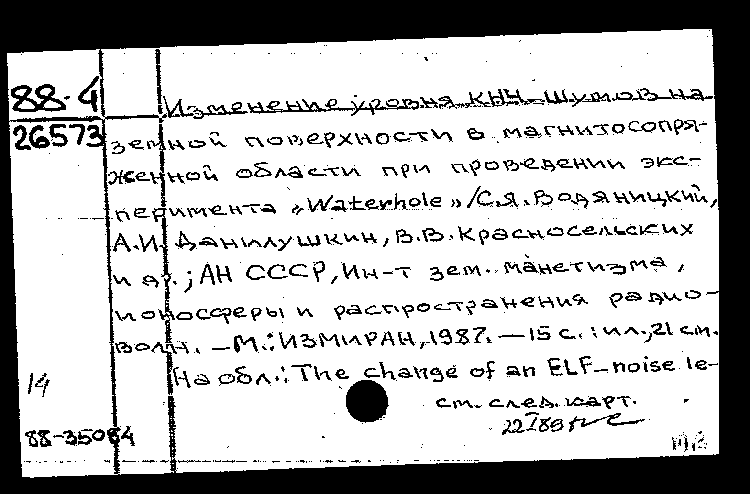 88-4
26573
Изменение уровня КНЧ-шумов на
земной поверхности в магнитосопря-
женной области при проведении экс-
перимента «Waterhole» / С.Я. Водяницкий,
А.И. Данилушкин, В.В. Красносельских
и др.; АН СССР, Ин-т зем. манетизма,
ионосферы и распространения радио-
волн. — М.: ИЗМИРАН, 1987. — 15 с.: ил.; 21 см.
На обл.: The change of an ELF-noise le-
см. след. карт.
14
88-35084